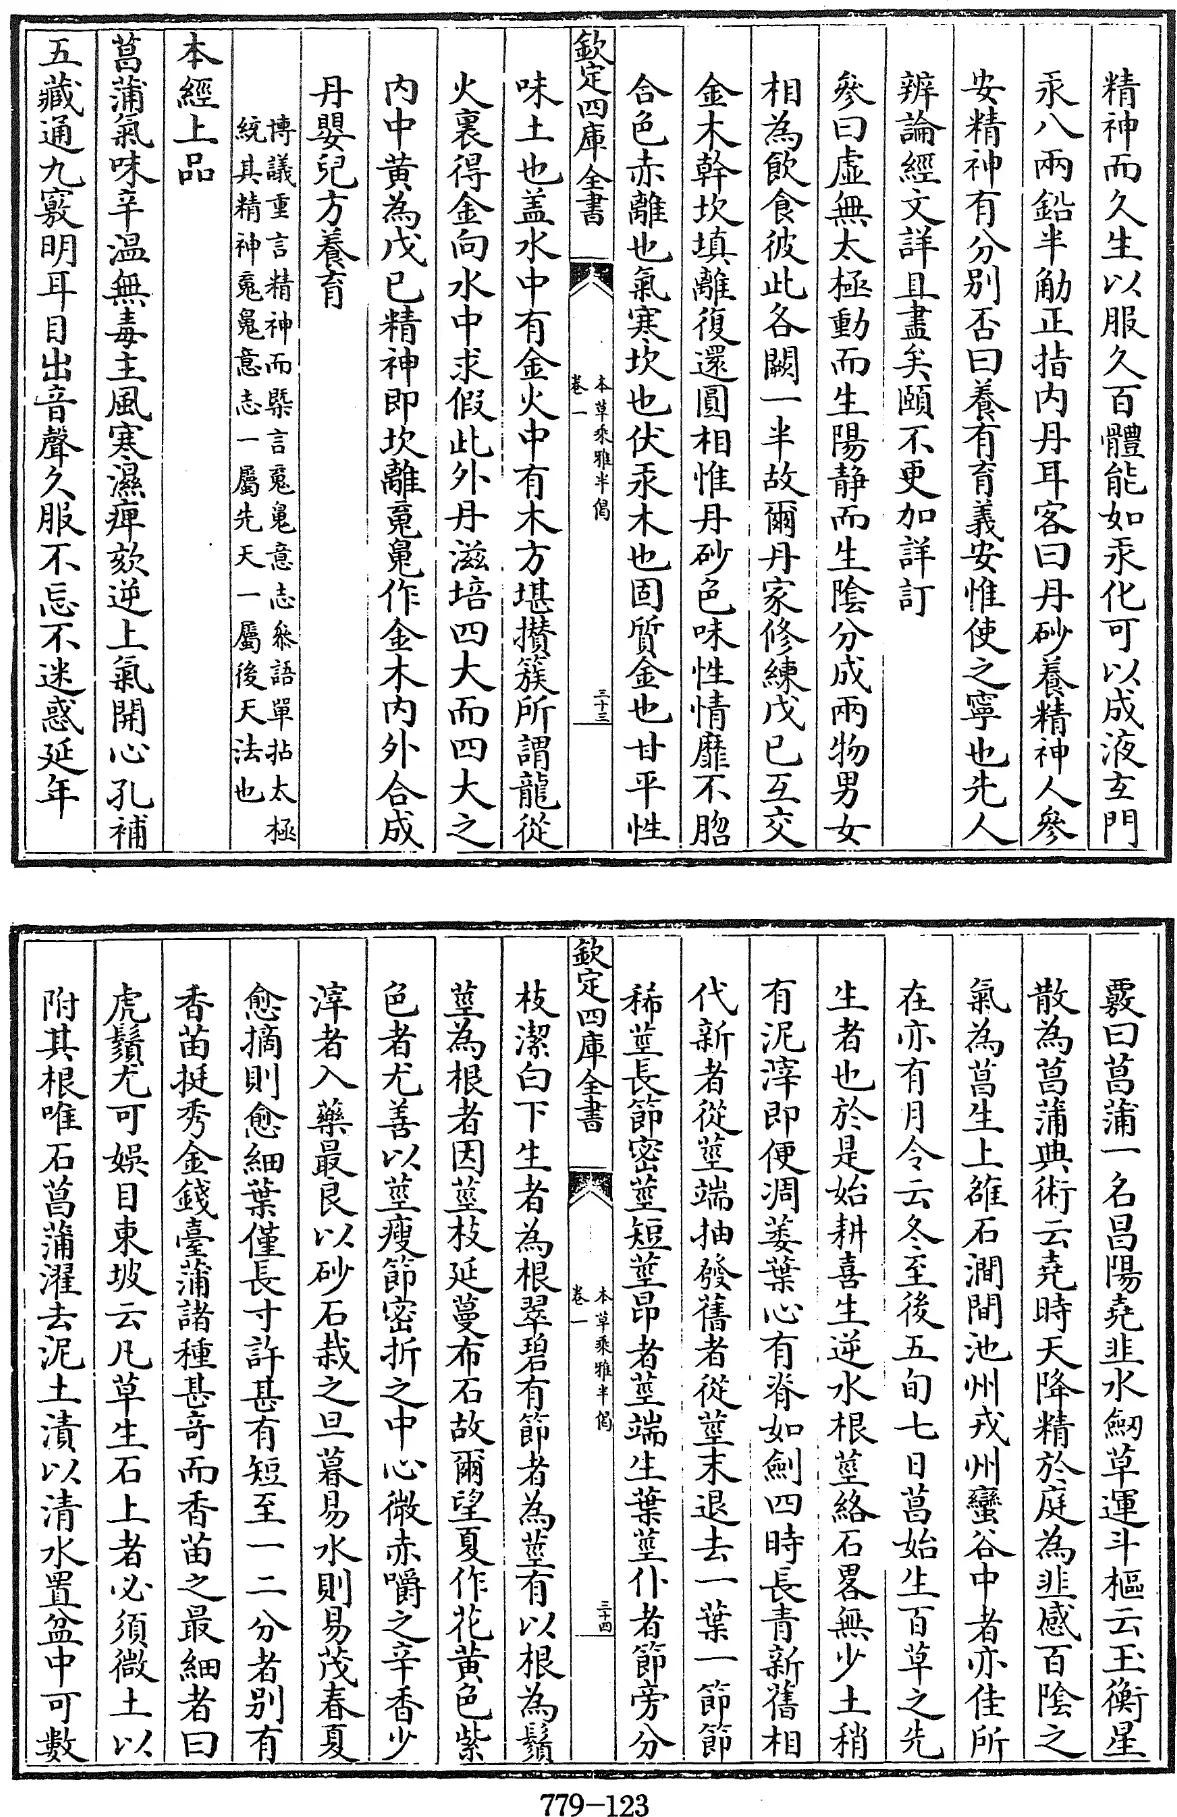 精神而久生以服久百體能如汞化可以成液玄門
汞八兩鉛半觔正指内丹耳客曰丹砂養精神人參
安精神有分别否曰養有育義安惟使之寧也先人
辨論經文詳且盡矣頤不更加詳訂
參曰虚無太極動而生陽静而生陰分成兩物男女
相為飲食彼此各闕一半故爾丹家修練戊已互交
金木幹坎填離復還圓相惟丹砂色味性情靡不脗
合色赤離也氣寒坎也伏汞木也固質金也甘平性
欽定四庫全書
本草乘雅半偈
卷一
三十三
味土也盖水中有金火中有木方堪攅簇所謂龍從
火裏得金向水中求假此外丹滋培四大而四大之
内中黄為戊已精神即坎離䰟䰟作金木内外合成
丹嬰兒方養育
博議重言精神而槩言䰟鬼意志叅語單拈太極
統其精神䰟鬼意志一屬先天一屬後天法也
本經上品
菖蒲氣味辛温無毒主風寒濕痺欬逆上氣開心孔補
五藏通九竅明耳目出音聲久服不忘不迷惑延年
覈曰菖蒲一名昌陽堯韭水劒草運斗樞云玉衡星
散為菖蒲典術云堯時天降精於庭為韭感百陰之
氣為菖生上雒石澗間池州戎州蠻谷中者亦佳所
在亦有月令云冬至後五旬七日菖始生百草之先
生者也於是始耕喜生逆水根莖絡石畧無少土稍
有泥滓即便凋萎葉心有脊如劍四時長青新舊相
代新者從莖端抽發舊者從莖末退去一葉一節節
稀莖長節密莖短莖昂者莖端生葉莖仆者節旁分
欽定四庫全書
本草乘雅半偈
卷一
三十四
枝潔白下生者為根翠碧有節者為莖有以根為鬚
莖為根者因莖枝延蔓布石故爾望夏作花黄色紫
色者尤善以莖瘦節密折之中心微赤嚼之辛香少
滓者入藥最良以砂石栽之旦暮易水則易茂春夏
愈摘則愈細葉僅長寸許甚有短至一二分者别有
香苗挺秀金錢臺蒲諸種甚奇而香苗之最細者曰
虎鬚尤可娯目東坡云凡草生石上者必須微土以
附其根唯石菖蒲濯去泥土漬以清水置盆中可數
779-123